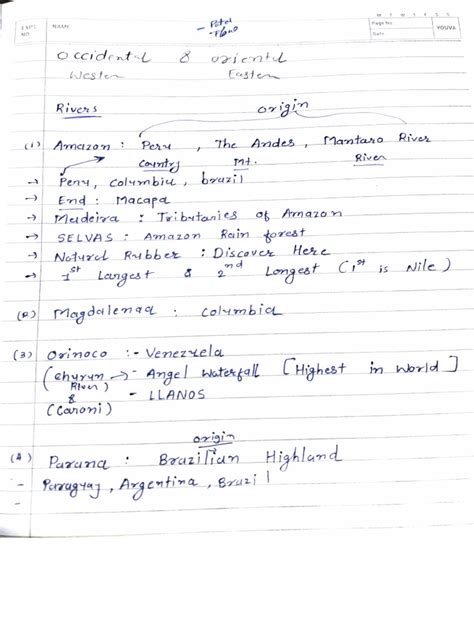 M T W T F S S
EXPT. NO.
NAME
Page No.
Date
YOUVA
occidental & oriental
Westen Easten
Rivers origin
(1) Amazon : Peru , The Andes , Mantaro River
country Mt. River
→ Peru, Columbia, brazil
→ End : Macapa
→ Madeira : Tributaries of Amazon
→ SELVAS : Amazon Rain forest
→ Natural Rubber : Discover Here
→ 1st Largest & 2nd Longest (1st is Nile)
(2) Magdalenad : columbia
(3) Orinoco :- Venezuela
(churun → - Angel Waterfall [Highest in World]
River)
& - LLANOS
(Caroni)
origin
(4) Parana : Brazilian Highland
- Paraguay, Argentina, Brazil
-